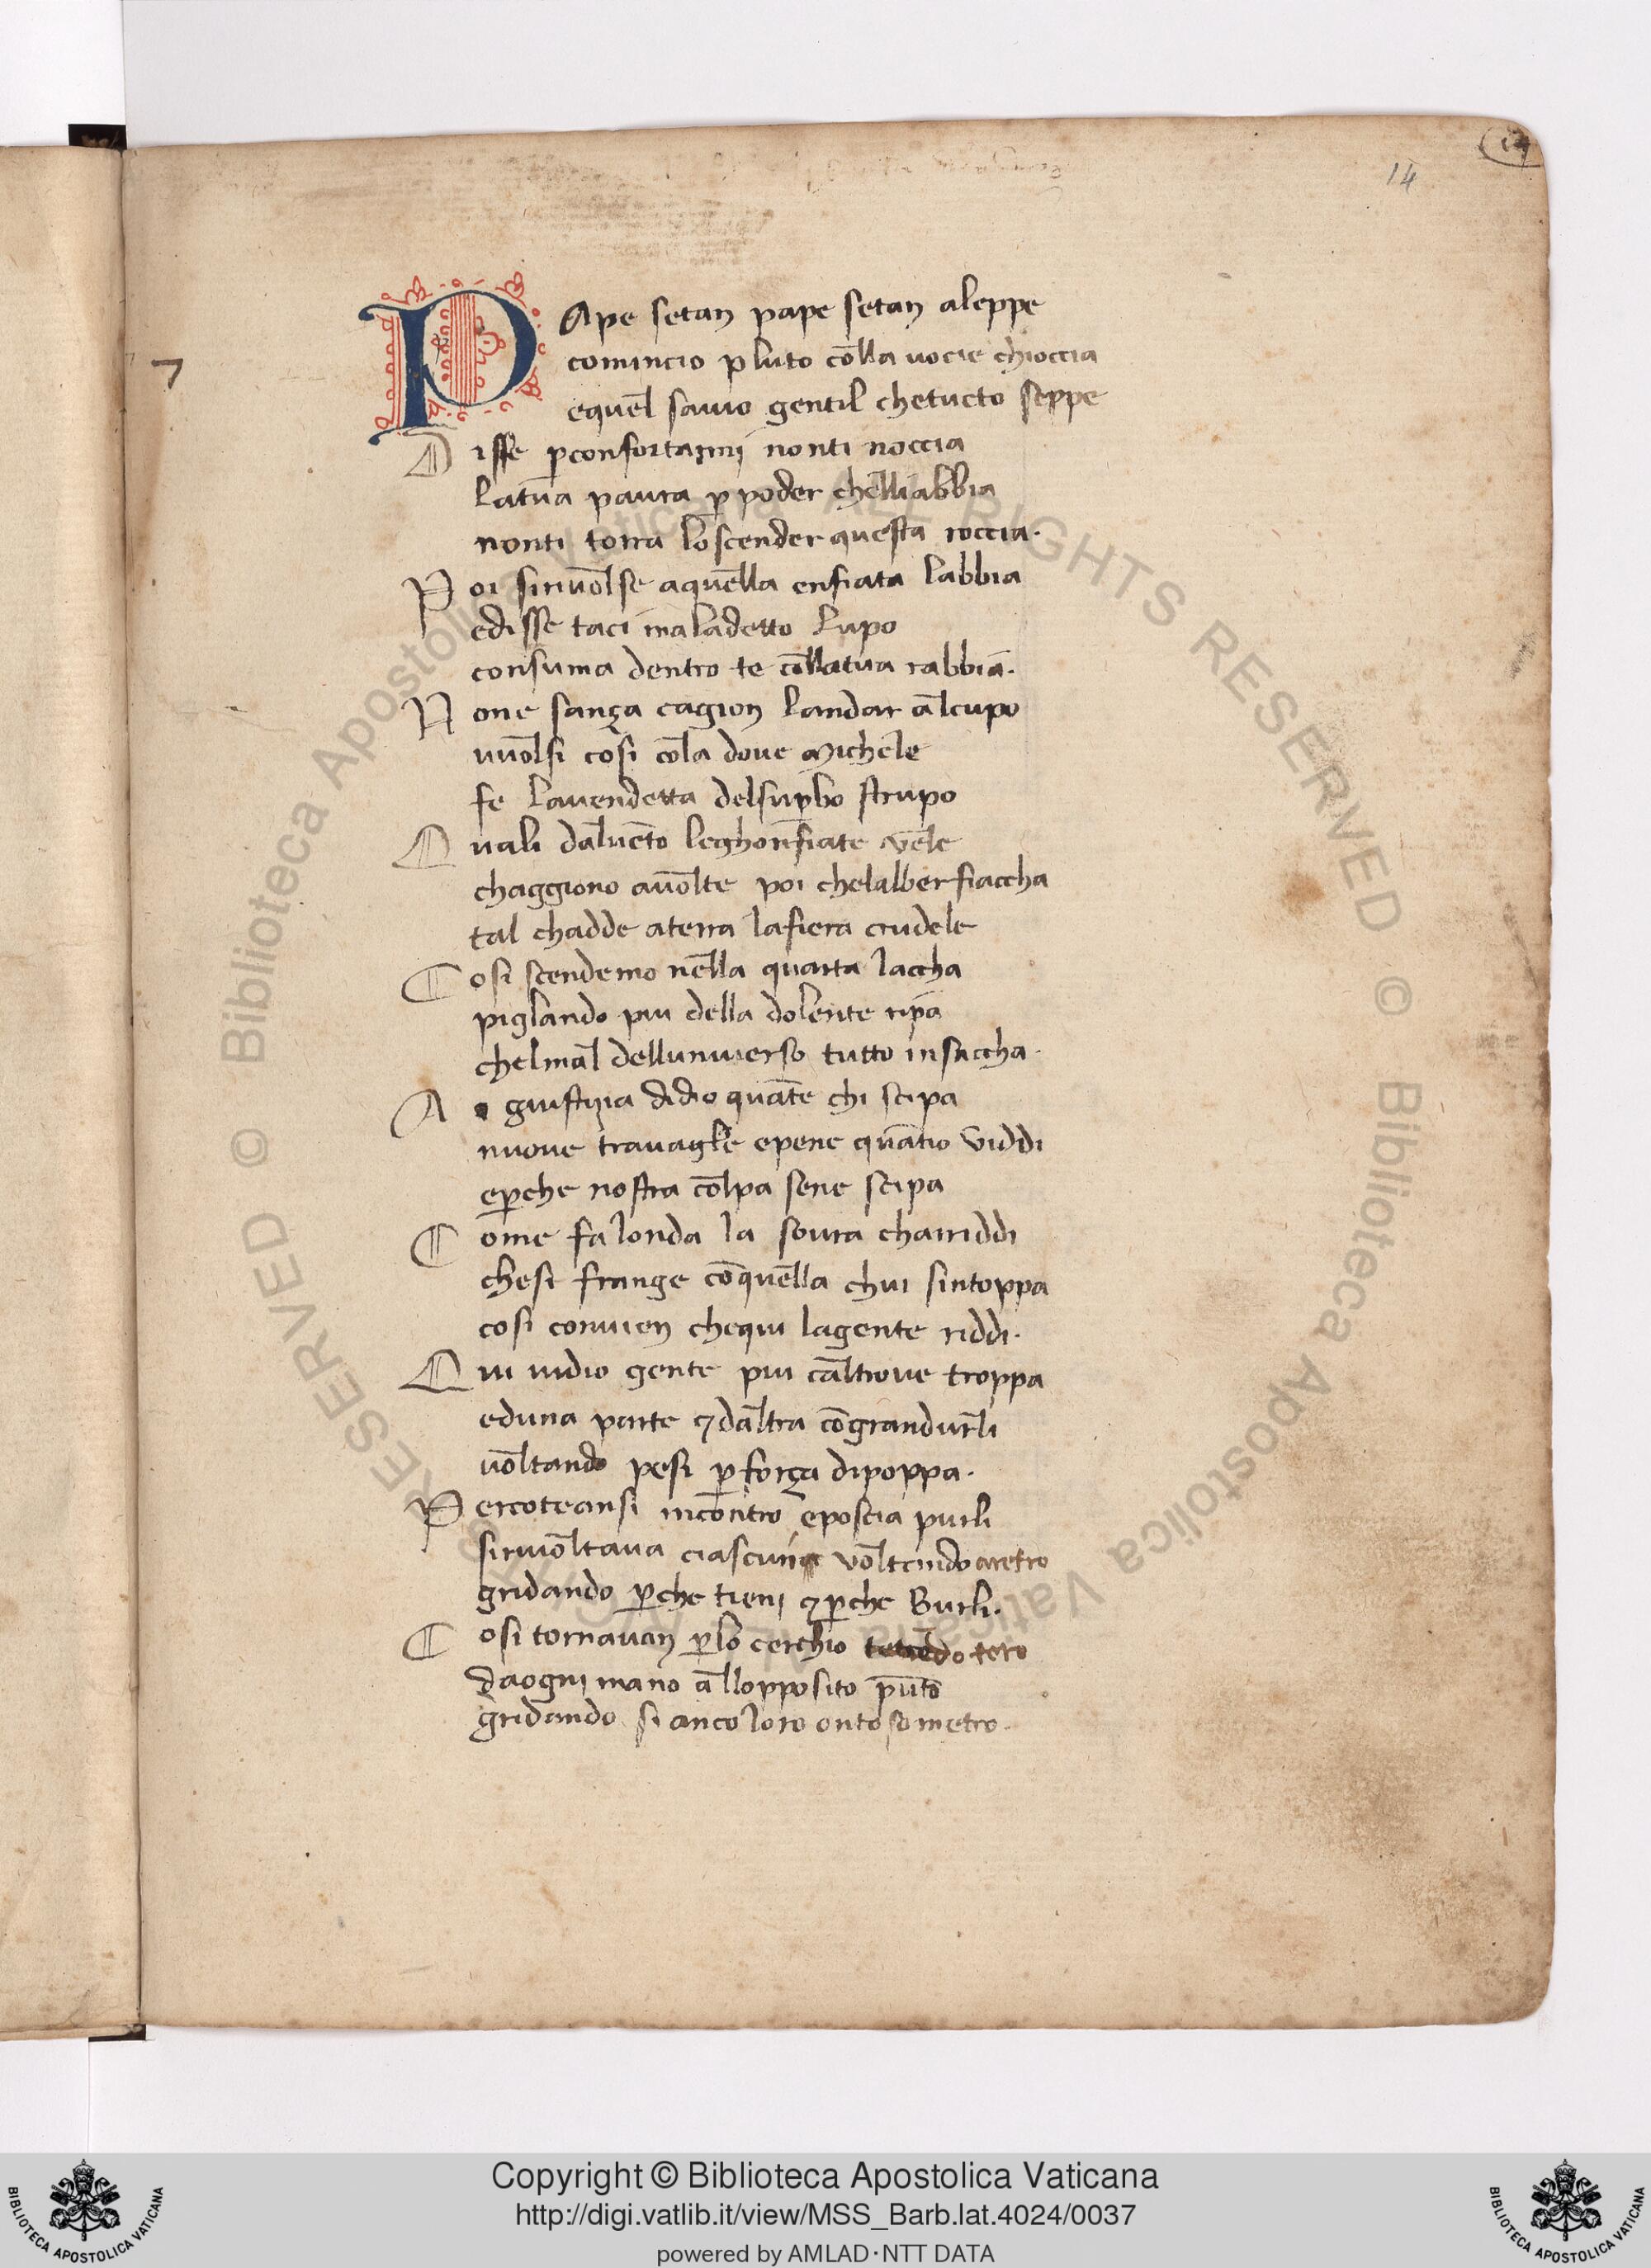 14
14
7
PApe setan pape setan aleppe
comincio pluto colla uocie chioccia
equel sauio gentil chetucto seppe
Disse pconfortarmi nonti noccia
Latua paura p poder chelliabbia
nonti torra loscender questa roccia.
Poi siriuolse aquella enfiata labbia
edisse taci maladetto lupo
consuma dentro te collatua rabbia.
None sança cagion landar alcupo
uuolsi cosi cola doue Michele
fe lauendetta delsupbo strupo
Quali daluēto leghonfiate vele
chaggiono auolte poi chelalber fiaccha
tal chadde aterra lafiera crudele
Cosi scendemo nella quarta laccha
piglando piu della dolente ripa
chelmal delluniuerso tutto insaccha.
A giustizia didio quāte chi scipa
nuove trauagle epene quātio viddi
epche nostra colpa sene scipa
Come fa londa la soura chariddi
chesi frange cōquella chui sintoppa
cosi conuien chequi lagente riddi.
Qui uidio gente piu caltroue troppa
eduna parte ⁊ daltra cōgrandurli
uoltando pesi p força dipoppa.
Percoteansi incontro eposcia purli
siriuoltaua ciascuna voltando aretro
gridando pche tieni ⁊ pche Burli.
Cosi tornauan plo cerchio tetro
daogni mano allopposito pūto
gridando si anco loro ontoso metro.
© Biblioteca Apostolica Vaticana ALL RIGHTS RESERVED
© Biblioteca Apostolica Vaticana ALL RIGHTS RESERVED
Copyright © Biblioteca Apostolica Vaticana
http://digi.vatlib.it/view/MSS_Barb.lat.4024/0037
powered by AMLAD·NTT DATA
BIBLIOTECA APOSTOLICA VATICANA
BIBLIOTECA APOSTOLICA VATICANA